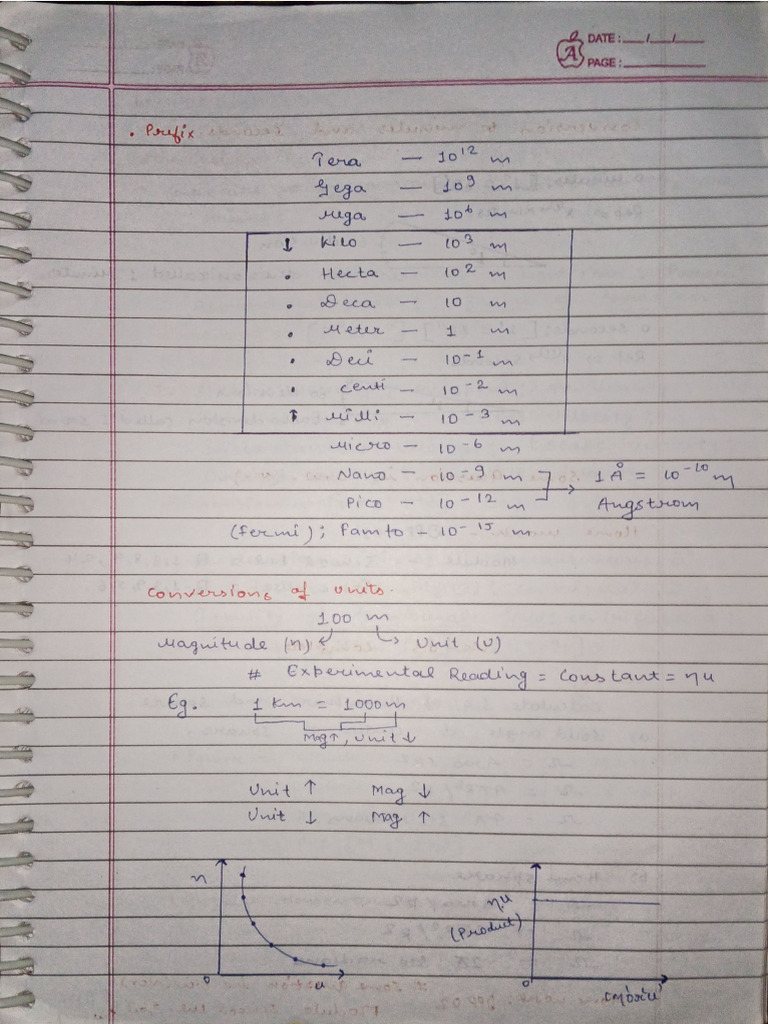 DATE: __/__/__
PAGE: ______
• Prefix
Tera — 10¹² m
Gega — 10⁹ m
Mega — 10⁶ m
↓ Kilo — 10³ m
• Hecta — 10² m
• Deca — 10 m
• Meter — 1 m
• Deci — 10⁻¹ m
• Centi — 10⁻² m
↑ Milli — 10⁻³ m
Micro — 10⁻⁶ m
Nano — 10⁻⁹ m → 1 Å = 10⁻¹⁰ m
Pico — 10⁻¹² m Angstrom
(fermi); Famto — 10⁻¹⁵ m
Conversions of Units.
100 m
Magnitude (n) Unit (u)
# Experimental Reading = Constant = nu
Eg. 1 Km = 1000m
Mag↑, Unit ↓
Unit ↑ Mag ↓
Unit ↓ Mag ↑
n
o u
nu
(Product)
o